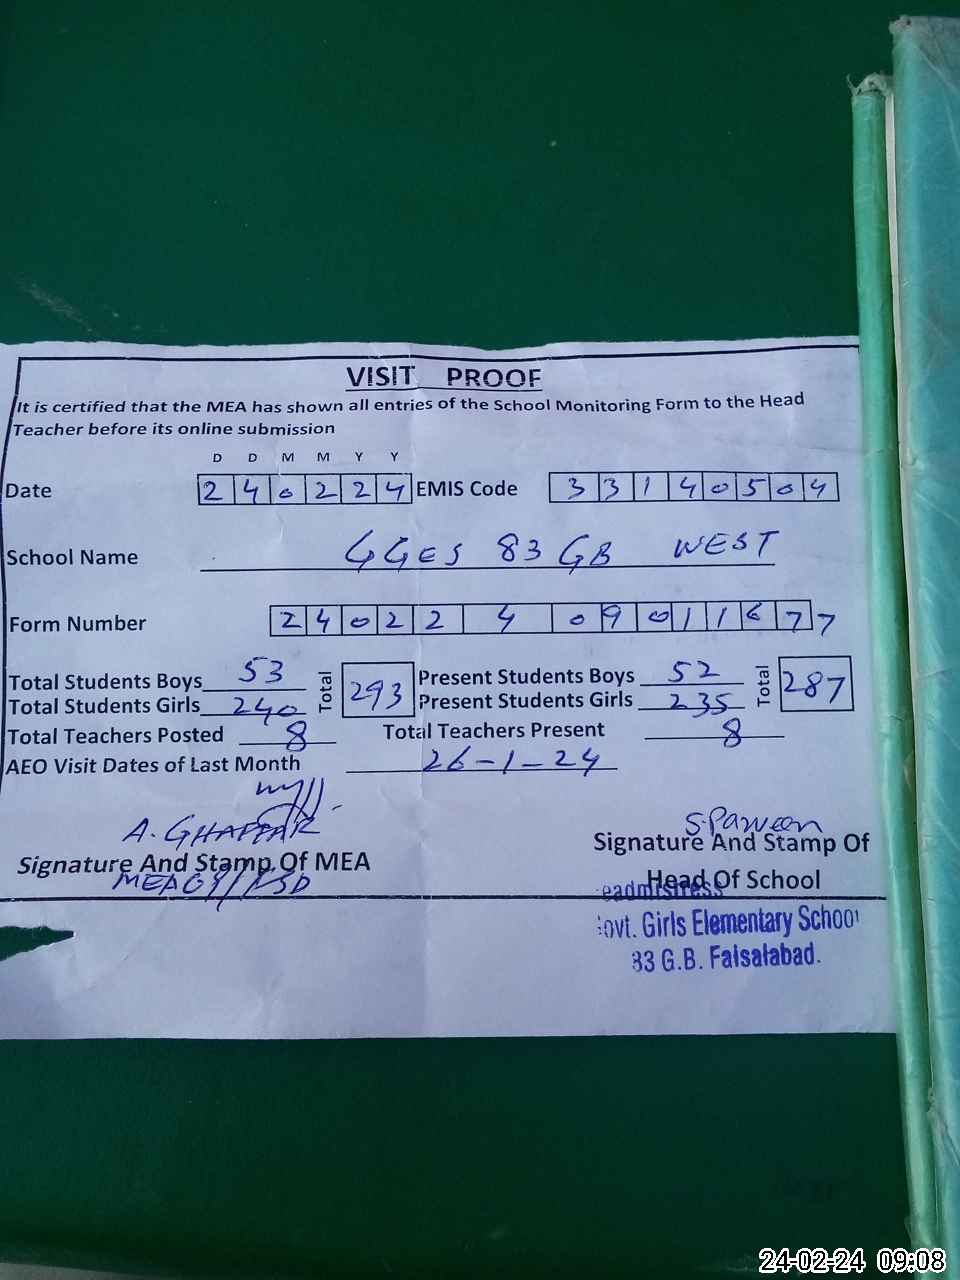 VISIT PROOF
It is certified that the MEA has shown all entries of the School Monitoring Form to the Head
Teacher before its online submission
D D M M Y Y
Date 2 4 0 2 2 4 EMIS Code 3 3 1 4 0 5 0 4
School Name GGES 83 GB WEST
Form Number 2 4 0 2 2 4 0 9 0 1 1 6 7 7
Total Students Boys 53 Total 293 Present Students Boys 52 Total 287
Total Students Girls 240 Present Students Girls 235
Total Teachers Posted 8 Total Teachers Present 8
AEO Visit Dates of Last Month 26-1-24
A. GHAFFAR S.Parveen
Signature And Stamp Of MEA Signature And Stamp Of
Head Of School
eadmistress
ovt. Girls Elementary School
83 G.B. Faisalabad.
24-02-24 09:08